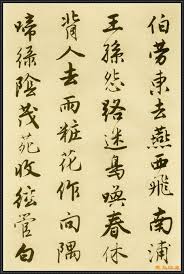 伯勞東去燕西飛南浦
王孫怨路迷鳥喚春休
背人去雨粧花作向隅
啼綠陰茂苑收絃管白